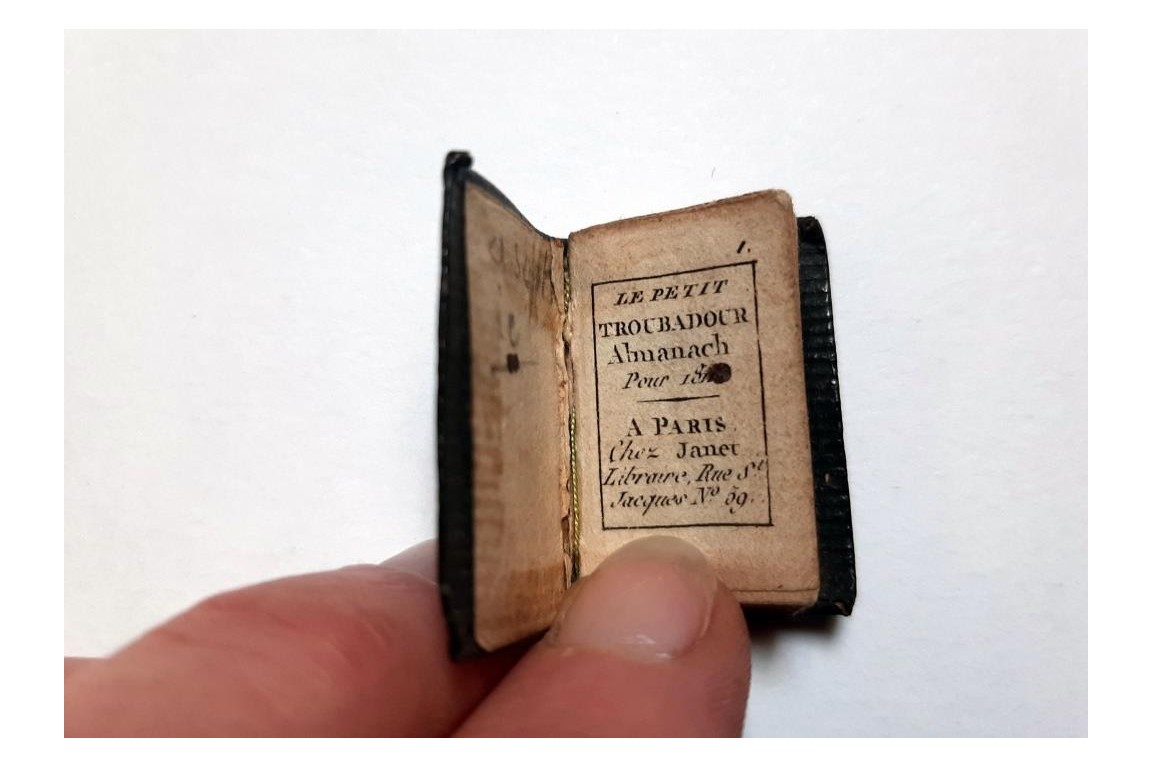 1.
LE PETIT
TROUBADOUR
Almanach
Pour
A PARIS
Chez Janet
Libraire, Rue St
Jacques No 59.